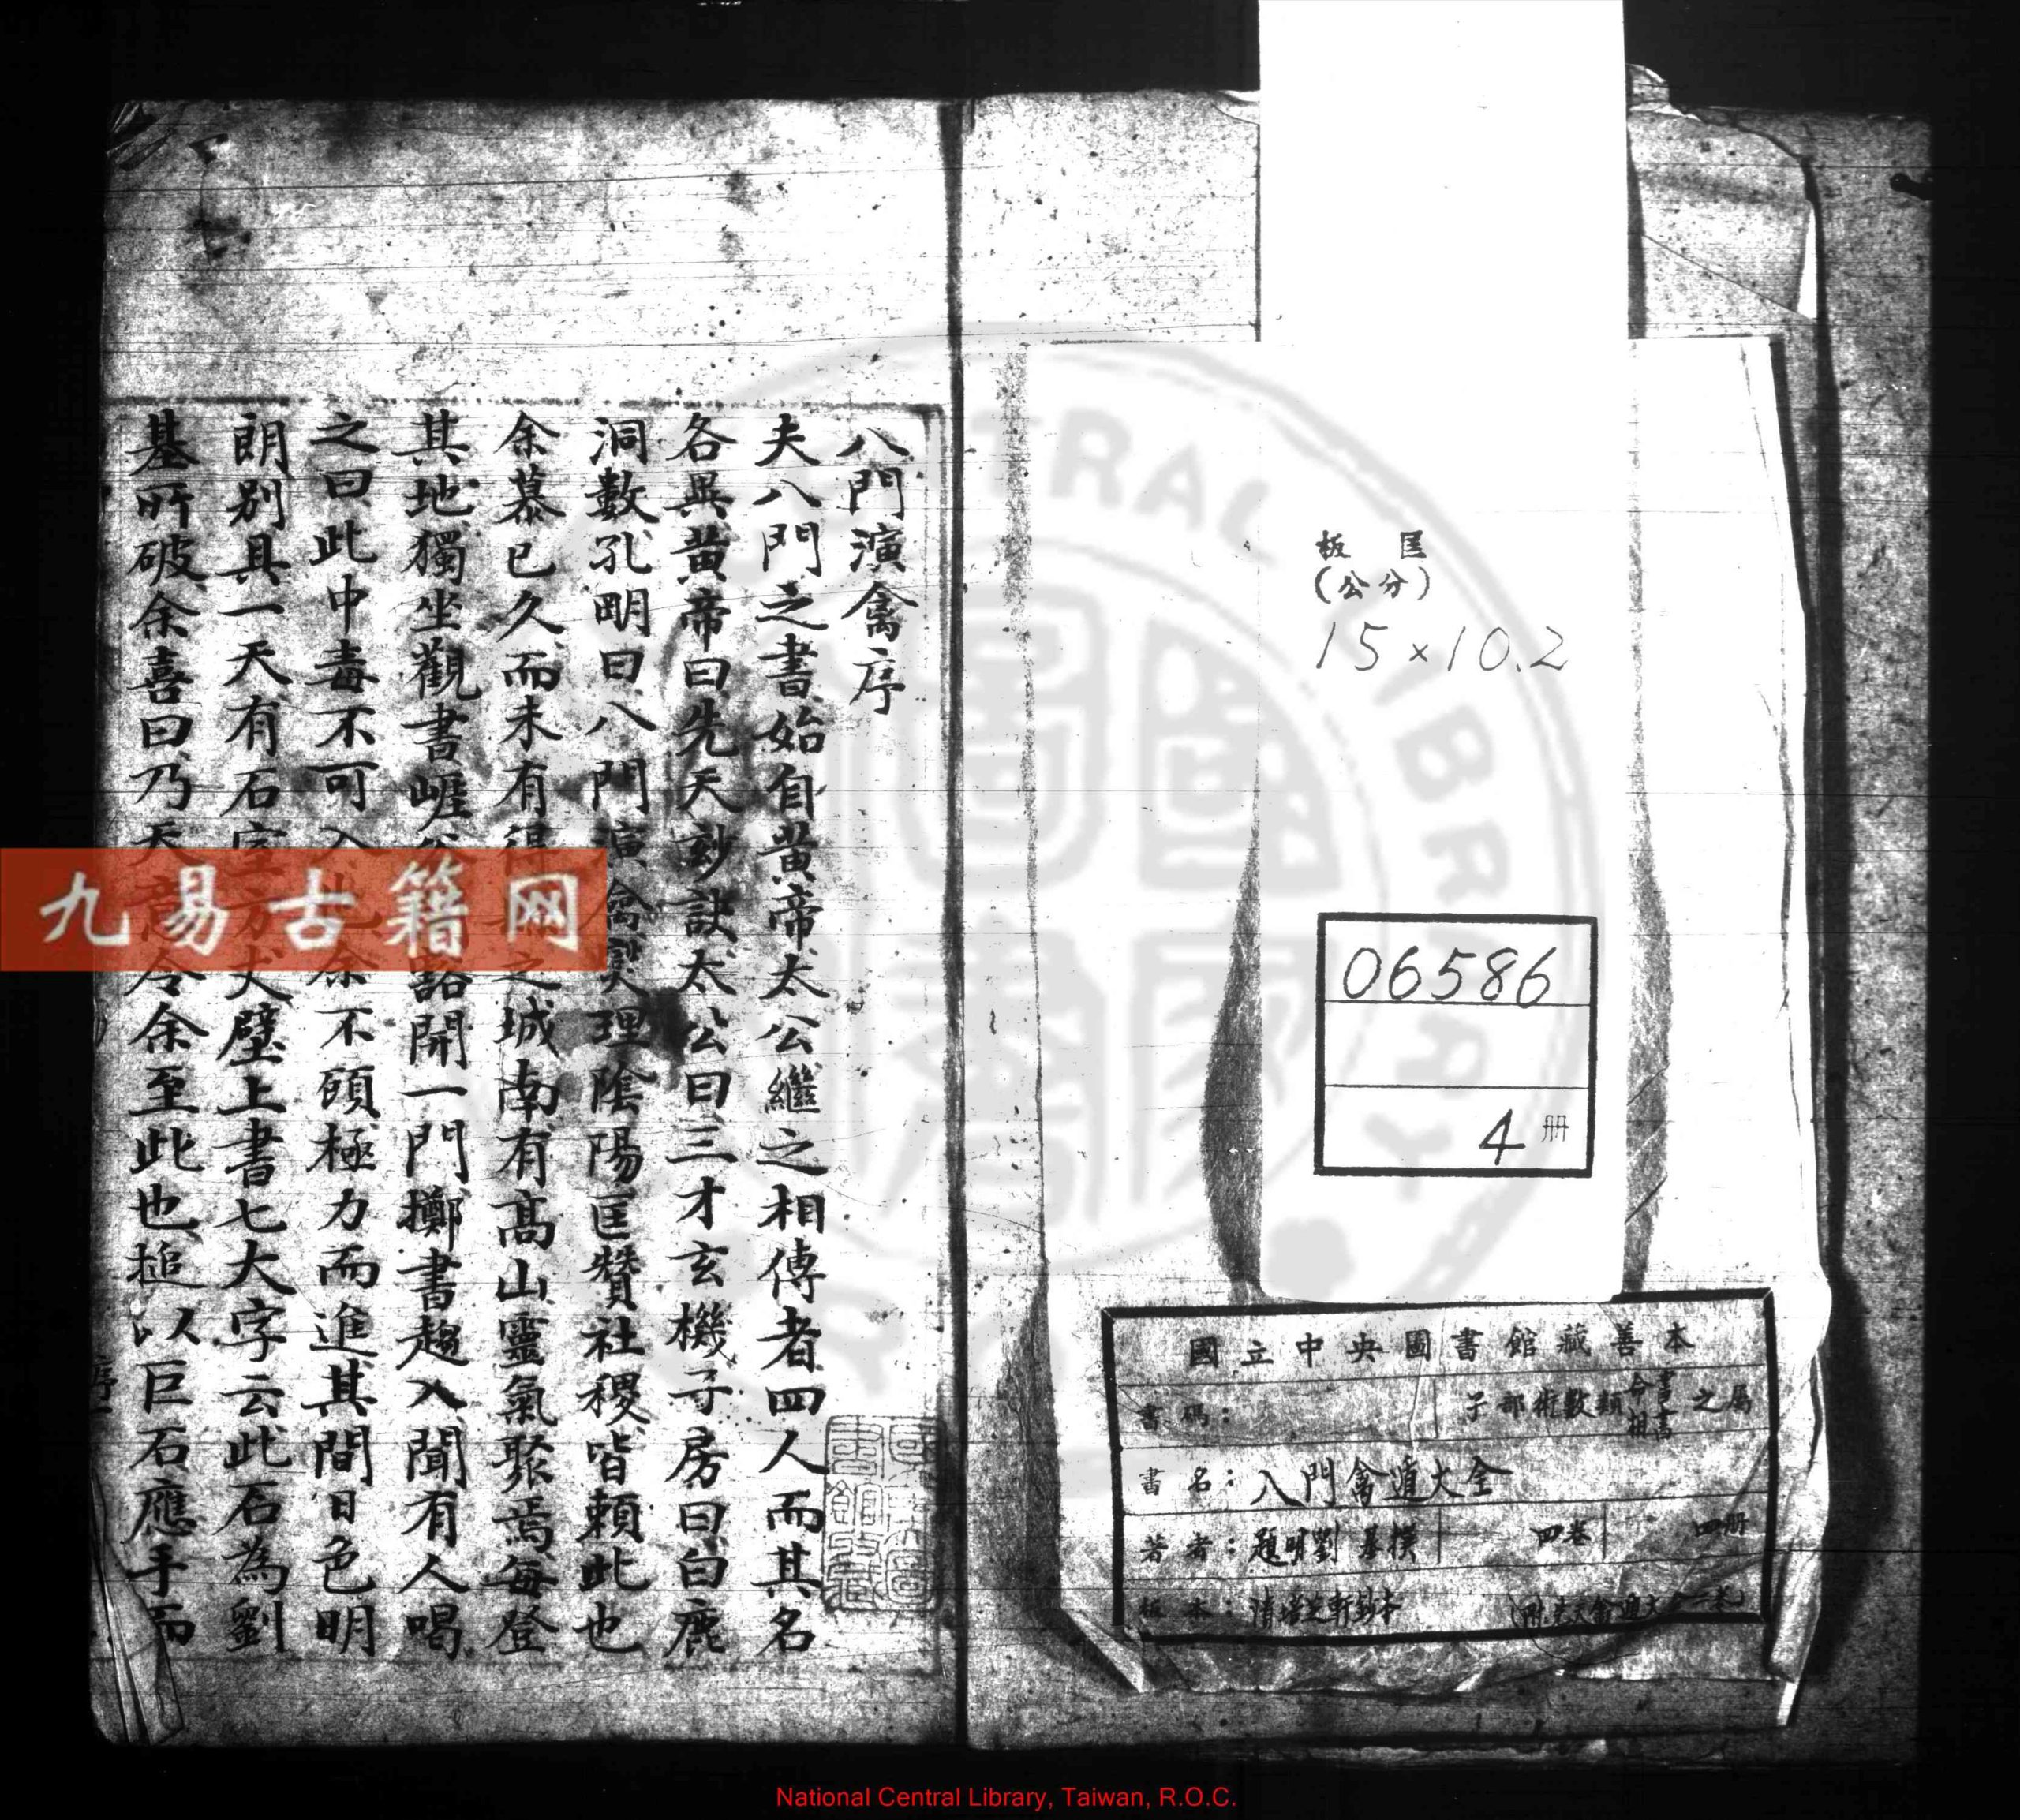 板匡
(公分)
15×10.2
06586
4冊
國立中央圖書館藏善本
書碼：
子部術數類命書相書之屬
書名：八門禽遁大全
著者：題明劉基撰 四卷 四冊
板本：清 軒鈔本
八門演禽序
夫八門之書始自黃帝太公繼之相傳者四人而其名
各異黃帝曰先天玅訣太公曰三才玄機子房曰白鹿
洞數孔明曰八門演禽燮理陰陽匡贊社稷皆賴此也
余慕已久而未有得 之城南有髙山靈氣聚焉每登
其地獨坐觀書崕 豁開一門擲書趨入聞有人喝
之曰此中毒不可入也余不顧極力而進其間日色明
朗別具一天有石室方丈壁上書七大字云此石為劉
基所破余喜曰乃天意令余至此也搥以巨石應手而
九易古籍网
National Central Library, Taiwan, R.O.C.